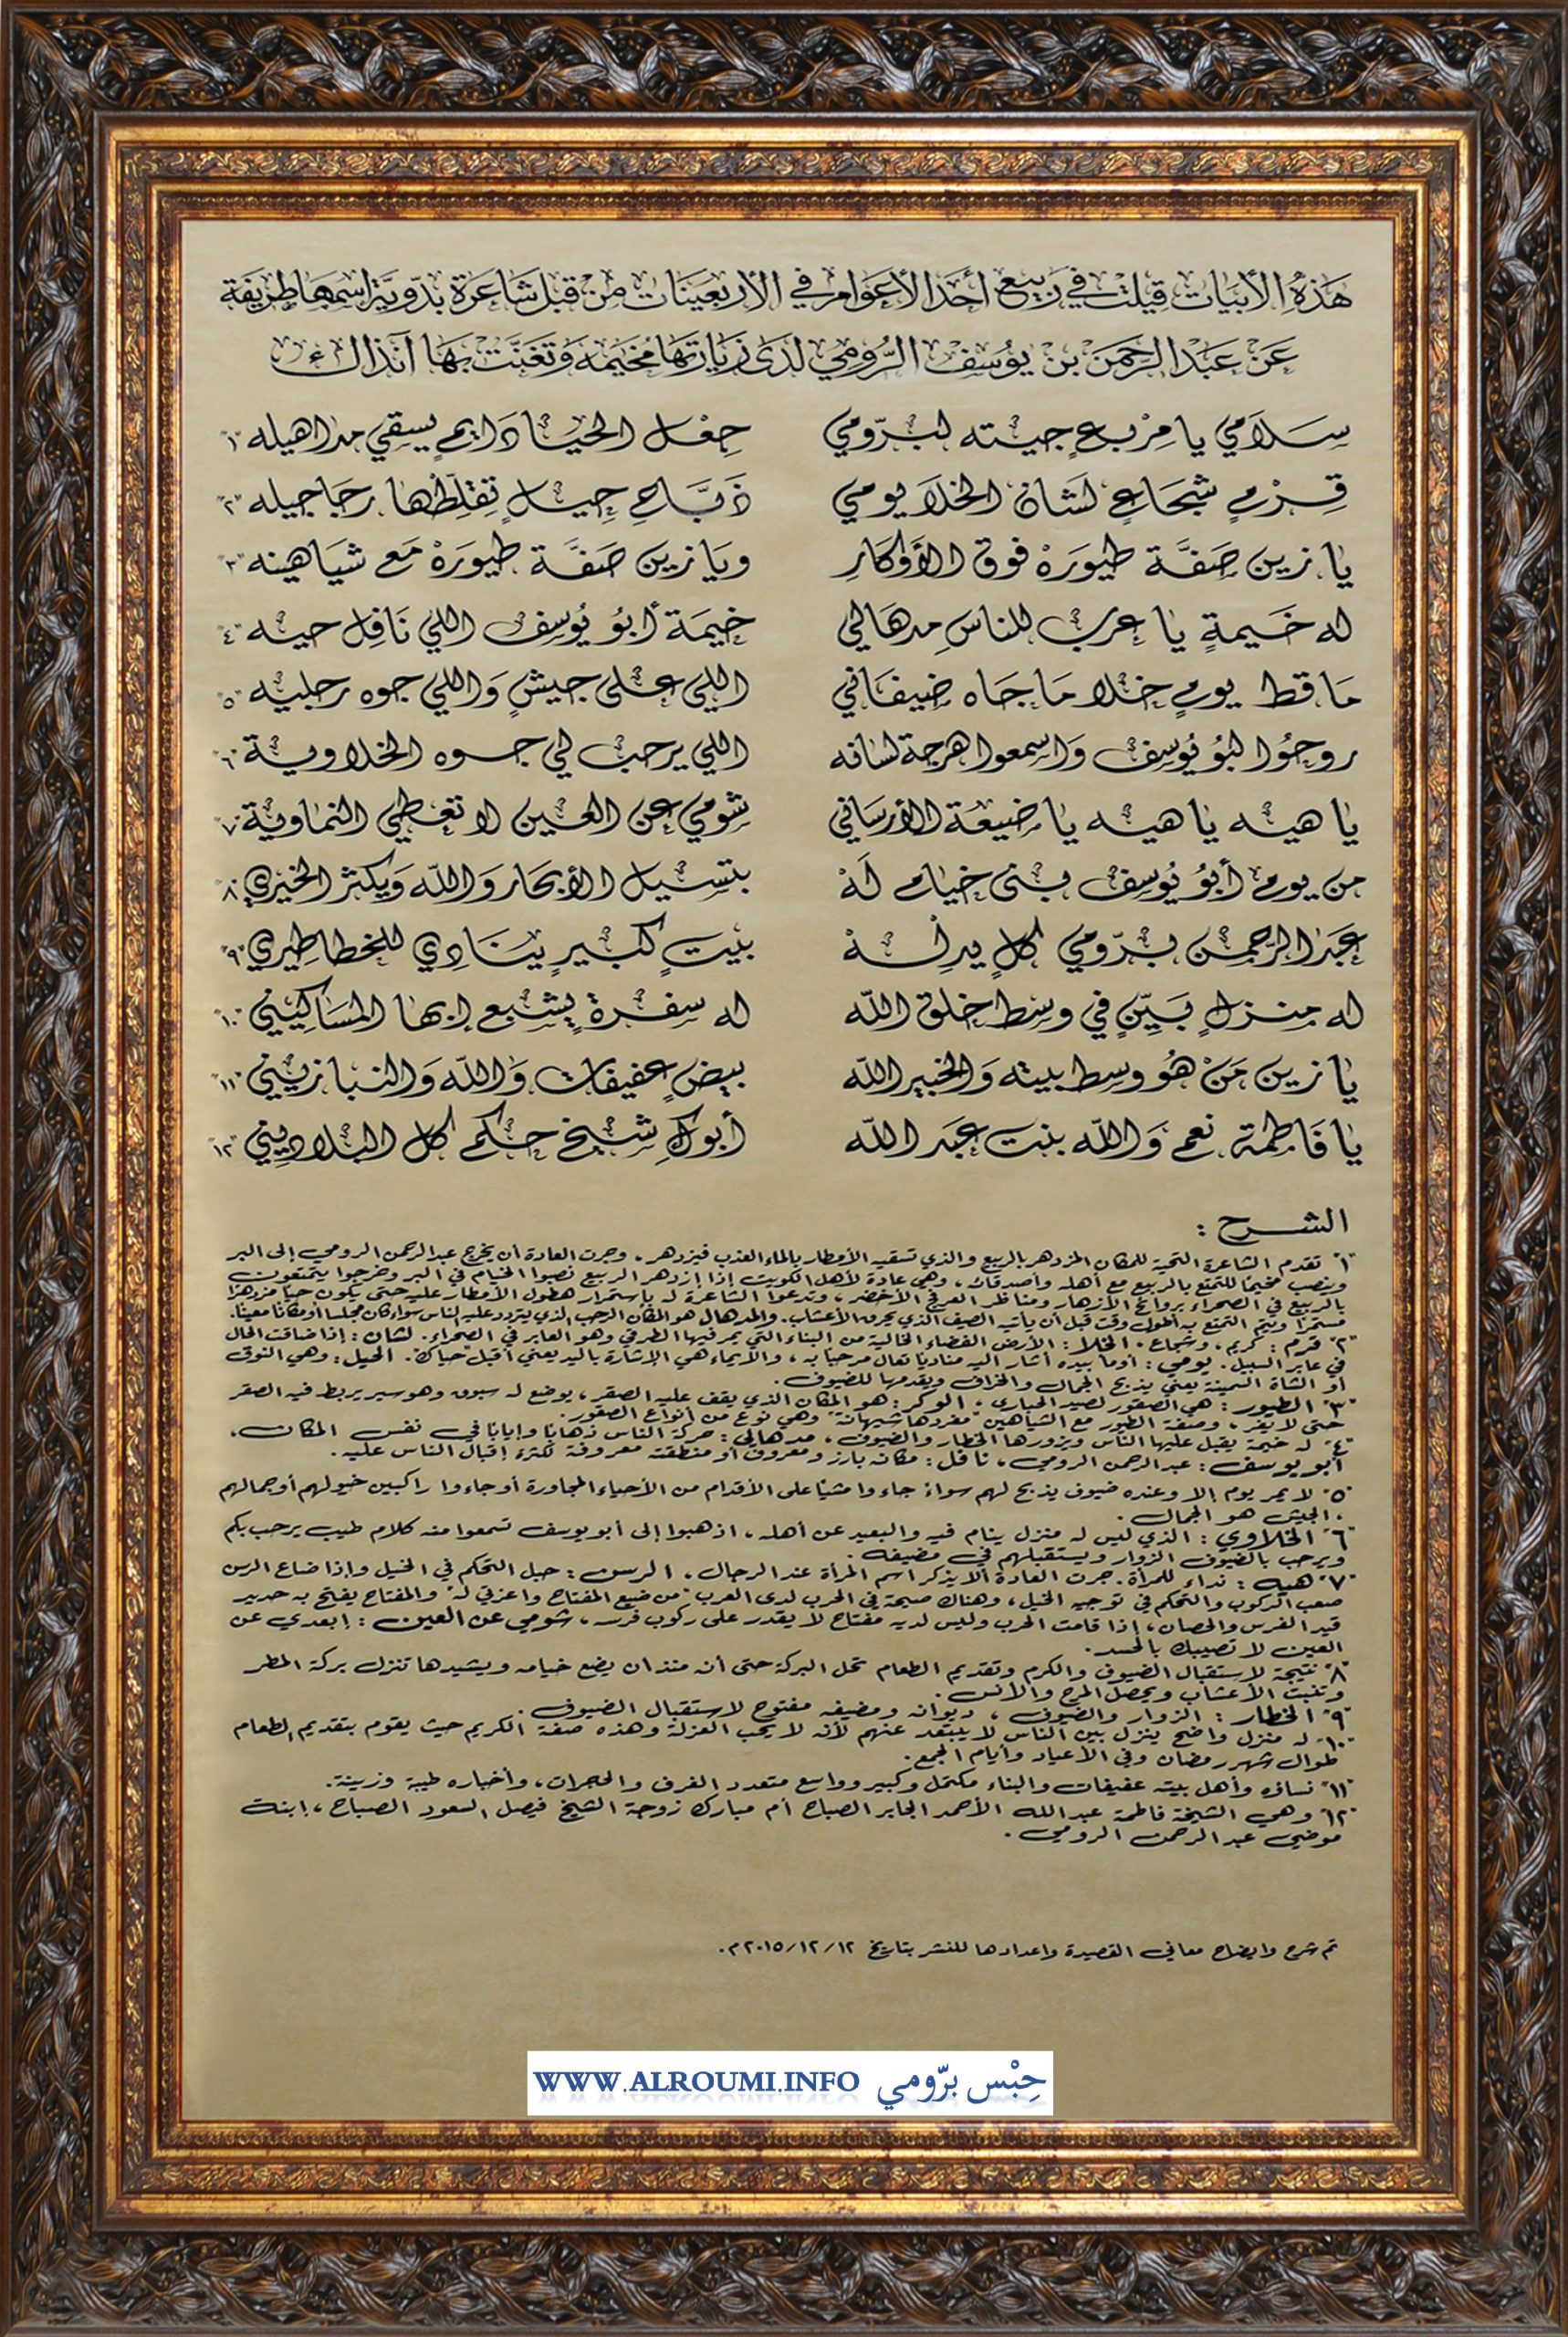 هَذِهِ الأَبيَات قِيلَت في رَبيع أَحَد الأَعوَام في الأَربَعينَات مِنْ قبَل شَاعِرَة بَدَويَّة اسمهَا طرِيفَة
عَنْ عَبْدالرَّحمَنْ بنْ يوُسفْ الرُّومي لَدَى زيَارتهَا مُخيَمه وَتَغَنَّتْ بهَا آنذاك
سَلَامي يا مِرْبعٍ جيته لبرّومي حِعْل الحيَا دَايمٍ يسقي مداهيله "١"
قِرْمٍ شجَاعٍ لَشَان الخلَا يومي ذبَّاحِ حِيلٍ تقلِّطْها رجَاجيله "٢"
يا زين صَفَّة طيورَهْ فوق الأَوكَارِ ويَا زين صَفَّة طيورَهْ مَع شيَاهينه "٣"
له خَيمةٍ يا عرب للناسِ مدهَالي خيمَة أَبوُ يُوسف اللي نَافِل حيه "٤"
مَا قط يومٍ خلا مَا جَاه ضيفَاني اللي على جيشٍ وَاللي جوه رجليه "٥"
روحُوا لبُو يُوسف وَاسمعوا هرجة لسانه اللي يرحب لي جوه الخلاوية "٦"
يا هيه يا هيه يا ضيعة الأرسَاني شومي عن العين لا تعطي النماوية "٧"
من يوم أَبوُ يُوسف بنى خيام لَهْ بتسيل الأبحار وَالله وَيكثر الخيري "٨"
عبَدالرَّحمن برّومي كلٍ يدلهْ بيتٍ كبيرٍ ينَادِي للخطاطِيري "٩"
له منزلٍ بَيِّنٍ في وسط خلق الله له سفرةٍ يشبع ابها المسَاكيني "١٠"
يا زين مَنْ هُو وسط بيته وَالخبير الله بيضٍ عفيفات وَالله وَالنبا زيني "١١"
يا فَاطمة نعم وَالله بنت عبَدالله أبوكِ شيخ حكم كل البلادِيني "١٢"
الشرح :
"١" تقدم الشاعرة التحية للمكان المزدهر بالربيع والذي تسقيه الأمطار بالماء العذب فيزدهر ، وجرت العادة أن يخرج عبدالرحمن الرومي إلى البر
وينصب مخيمًا للتمتع بالربيع مع أهله وأصدقائه ، وهي عادة لأهل الكويت إذا ازدهر الربيع نصبوا الخيام في البر وخرجوا يتمتعون
بالربيع في الصحراء بروائح الأزهار ومناظر العرفج الأخضر ، وتدعوا الشاعرة له بإستمرار هطول الأمطار عليه حتى يكون حيًا مزدهرًا
مستمرًا ويتم التمتع به أطول وقت قبل أن يأتيه الصيف الذي يحرق الأعشاب . والمدهال هو المكان الرحب الذي يتردد عليه الناس سواء كان مجلسا أو مكانًا معينًا .
"٢" قرم : كريم ، وشجاع . الخلا : الأرض الفضاء الخالية من البناء التي يمر فيها الطرقي وهو العابر في الصحراء . لشان : إذا ضاقت الحال
في عابر السبيل . يومي : أومأ بيده أشار اليه مناديا تعال مرحبا به ، والايماء هي الإشارة باليد يعني أقبل "حياك" . الحيل : وهي النوق
أو الشاة السمينة يعني يذبح الجمال والخراف ويقدمها للضيوف .
"٣" الطيور : هي الصقور لصيد الحبارى ، الوكر : هو المكان الذي يقف عليه الصقر ، يوضع له سبوق وهو سير يربط فيه الصقر
حتى لا يفر ، وصفة الطيور مع الشياهين "مفردها شيهانة" وهي نوع من أنواع الصقور .
"٤" له خيمة يقبل عليها الناس ويزورها الخطار والضيوف ، مدهالي : حركة الناس ذهابًا وإيابًا في نفس المكان .
أبو يوسف : عبدالرحمن الرومي ، نافل : مكانه بارز ومعروف أو منطقته معروفة لكثرة إقبال الناس عليه .
"٥" لا يمر يوم إلا وعنده ضيوف يذبح لهم سواءً جاءوا مشيًا على الأقدام من الأحياء المجاورة أو جاءوا راكبين خيولهم أو جمالهم
. الجيش هو الجمال .
"٦" الخلاوي : الذي ليس له منزل ينام فيه والبعيد عن أهله ، اذهبوا إلى أبو يوسف تسمعوا منه كلام طيب يرحب بكم
ويرحب بالضيوف الزوار ويستقبلهم في مضيفه .
"٧" هيه : نداء للمرأة . جرت العادة ألا يذكر اسم المرأة عند الرجال ، الرسن : حبل التحكم في الخيل وإذا ضاع الرسن
صعب الركوب والتحكم في توجيه الخيل ، وهناك صيحة في الحرب لدى العرب "من ضيع المفتاح واعزتي له" والمفتاح يفتح به حديد
قيد الفرس والحصان ، إذا قامت الحرب وليس لديه مفتاح لا يقدر على ركوب فرسه ، شومي عن العين : إبعدي عن
العين لا تصيبك بالحسد .
"٨" نتيجة لاستقبال الضيوف والكرم وتقديم الطعام تحل البركة حتى أنه منذ ان يضع خيامه ويشيدها تنزل بركة المطر
وتنبت الأعشاب ويحصل المرح والأنس .
"٩" الخطار : الزوار والضيوف ، ديوانه ومضيفه مفتوح لاستقبال الضيوف .
"١٠" له منزل واضح ينزل بين الناس لا يبتعد عنهم لأنه لا يحب العزلة وهذه صفة الكريم حيث يقوم بتقديم الطعام
طوال شهر رمضان وفي الأعياد وأيام الجمع .
"١١" نساؤه وأهل بيته عفيفات والبناء مكتمل وكبير وواسع متعدد الغرف والحجرات ، وأخباره طيبة وزينة .
"١٢" وهي الشيخة فاطمة عبدالله الأحمد الجابر الصباح أم مبارك زوجة الشيخ فيصل السعود الصباح ، إبنة
موضي عبدالرحمن الرومي .
تم شرح وايضاح معاني القصيدة واعدادها للنشر بتاريخ ١٢/١٢/٢٠١٥م .
حِبْس برّومي WWW.ALROUMI.INFO